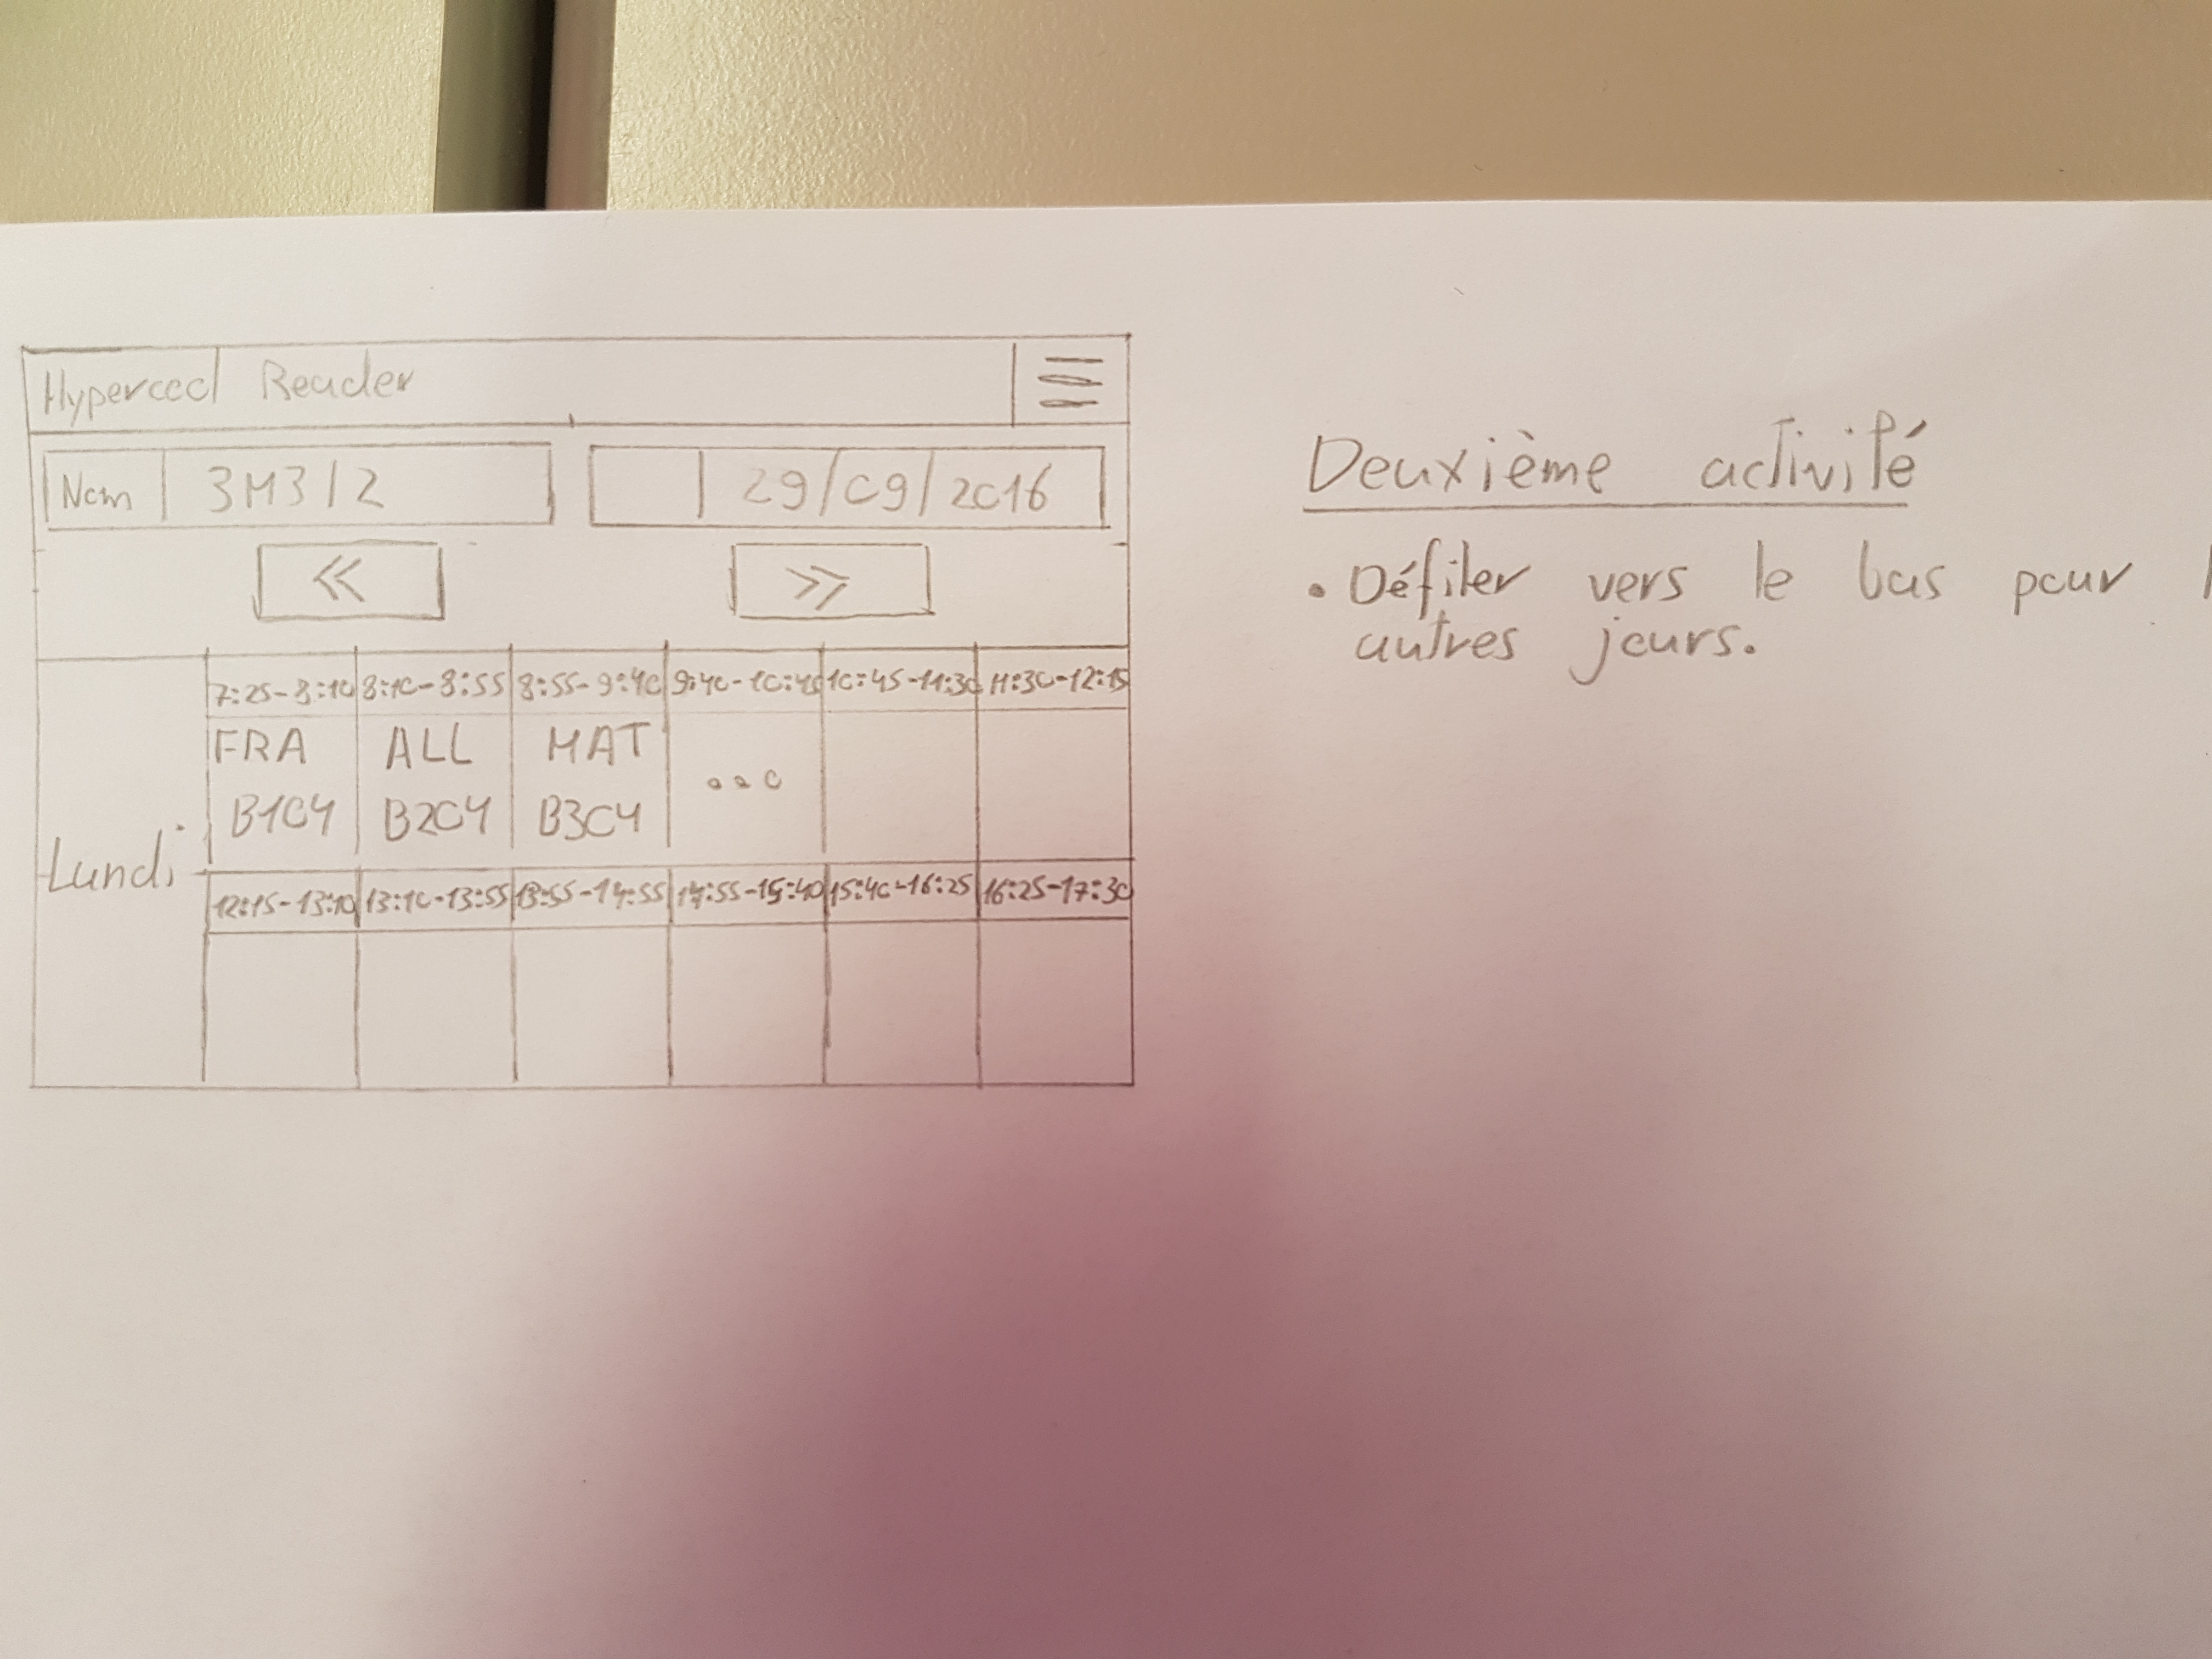 Hypercool Reader ☰
Nom 3M3I2 29/09/2016
<< >>
7:25-8:10 8:10-8:55 8:55-9:40 9:40-10:45 10:45-11:30 11:30-12:15
FRA ALL MAT ...
Lundi B104 B204 B304
12:15-13:10 13:10-13:55 13:55-14:55 14:55-15:40 15:40-16:25 16:25-17:30
Deuxième activité
• Défiler vers le bas pour
autres jours.